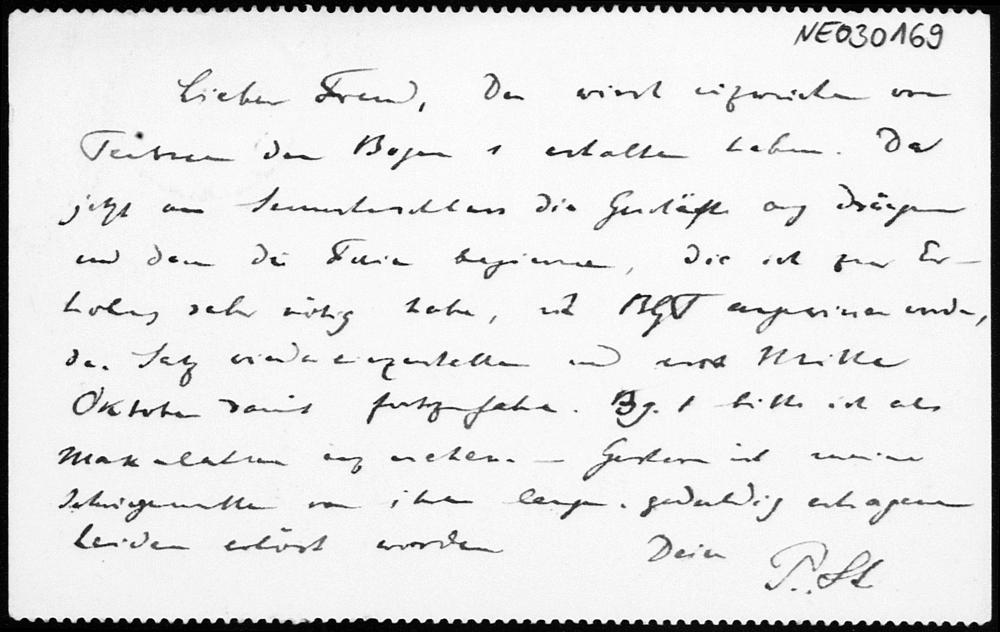 NE030169
Lieber Freund, Du wirst inzwischen von
Teubner den Bogen 1 erhalten haben. Da
jetzt am Semesterschluss die Geschäfte arg drängen
und dann die Ferien beginnen, die ich zur Er-
holung sehr nötig habe, ist BGT angewiesen worden,
den Satz wieder einzustellen und erst Mitte
Oktober damit fortzufahren. Bg. 1 bitte ich als
Makulatur anzusehen. — Gestern ist meine
Schwiegermutter von ihrem langen, geduldig ertragenen
Leiden erlöst worden Dein
P. St